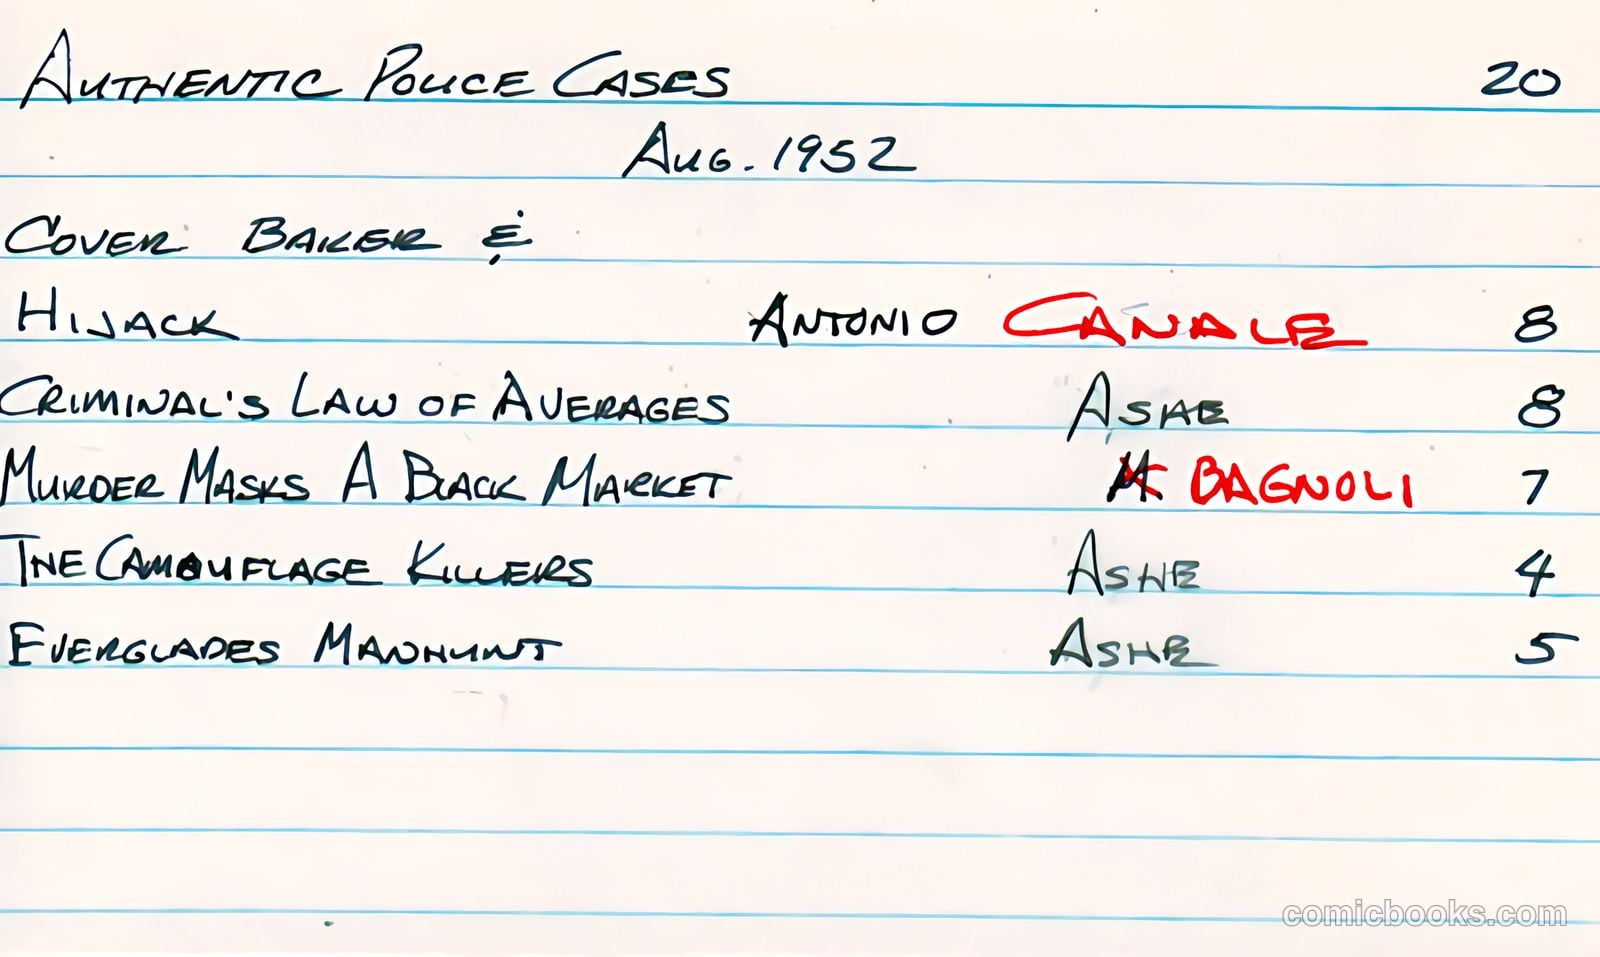 AUTHENTIC POLICE CASES 20
AUG. 1952
COVER BAKER &
HIJACK ANTONIO CANALE 8
CRIMINAL'S LAW OF AVERAGES ASHE 8
MURDER MASKS A BLACK MARKET BAGNOLI 7
THE CAMOUFLAGE KILLERS ASHE 4
EVERGLADES MANHUNT ASHE 5
comicbooks.com